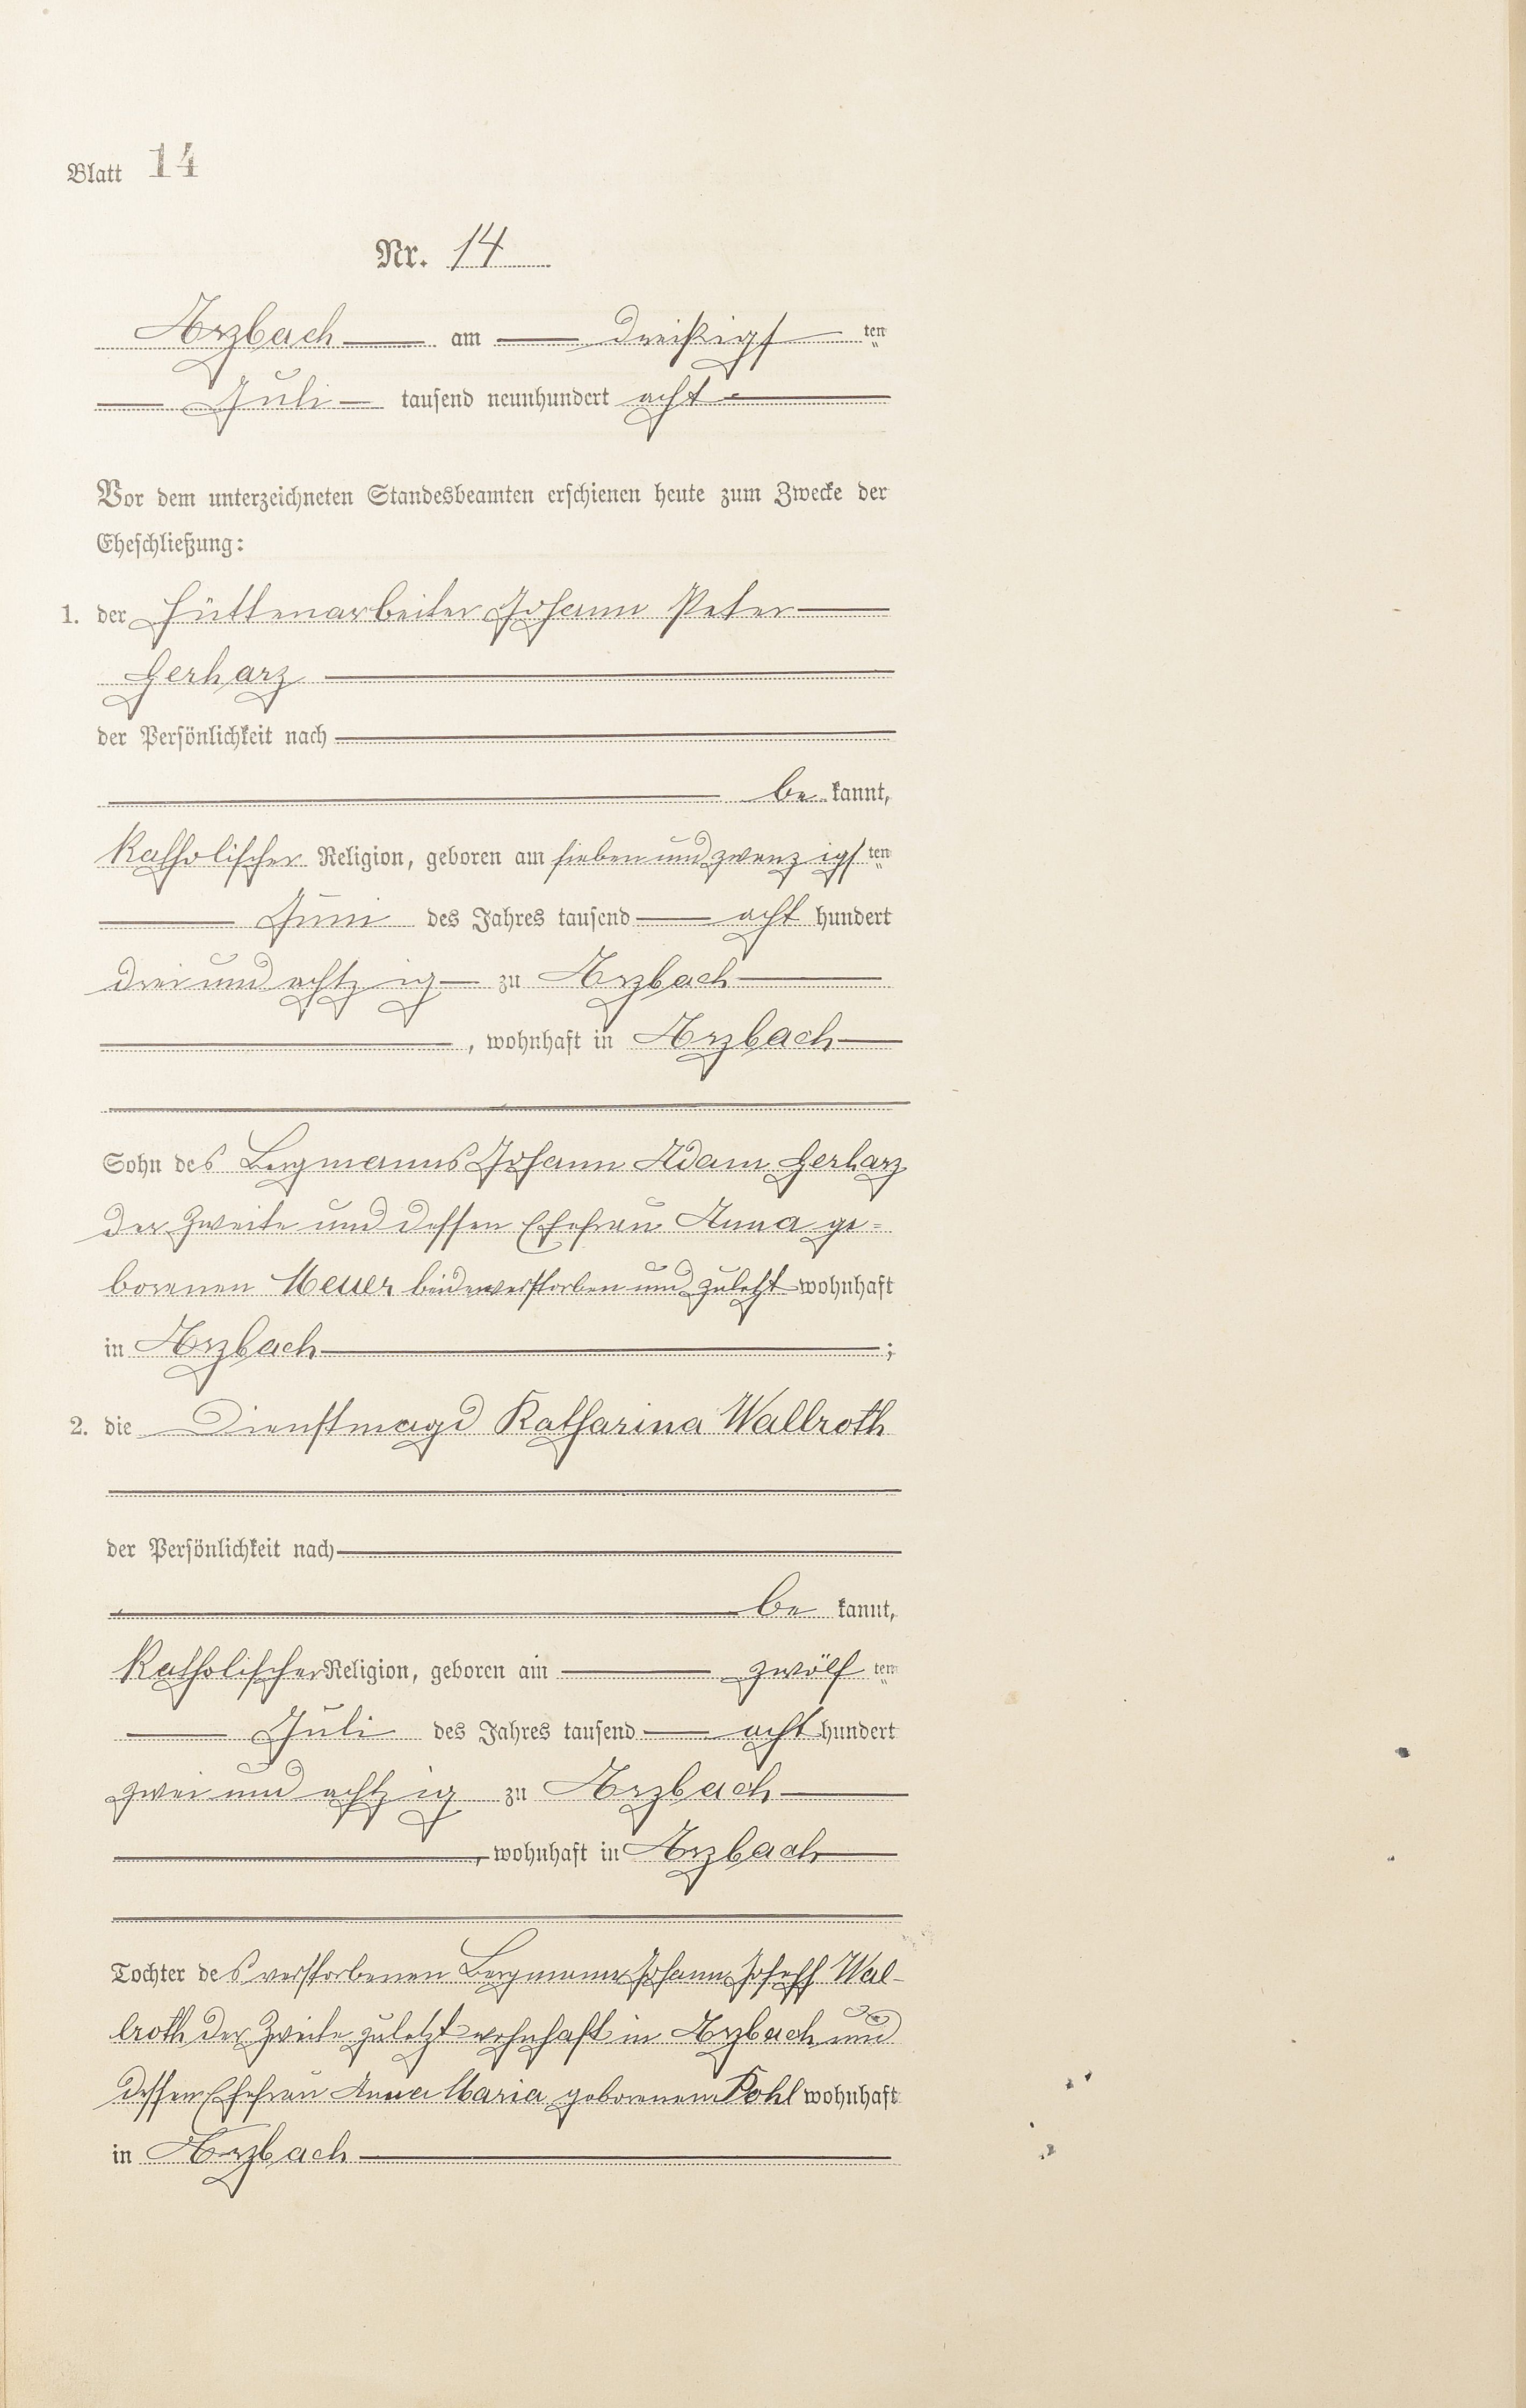 Blatt 14
Nr. 14
Arzbach am dreißigsten
Juli tausend neunhundert acht
Vor dem unterzeichneten Standesbeamten erschienen heute zum Zwecke der
Eheschließung:
1. der Hüttenarbeiter Johann Peter
Gerharz
der Persönlichkeit nach
be kannt,
katholischer Religion, geboren am sieben und zwanzigsten
Juni des Jahres tausend acht hundert
drei und achtzig zu Arzbach
, wohnhaft in Arzbach
Sohn des Bergmanns Johann Adam Gerharz
der Zweite und dessen Ehefrau Anna ge=
borenen Meuer beide verstorben und zuletzt wohnhaft
in Arzbach ;
2. die Dienstmagd Katharina Wallroth
der Persönlichkeit nach
be kannt,
katholischer Religion, geboren am zwölf ten
Juli des Jahres tausend acht hundert
zwei und achtzig zu Arzbach
, wohnhaft in Arzbach
Tochter des verstorbenen Bergmann Johann Joseph Wal-
lroth der Zweite zuletzt wohnhaft in Arzbach und
dessen Ehefrau Anna Maria geborenen Pohl wohnhaft
in Arzbach